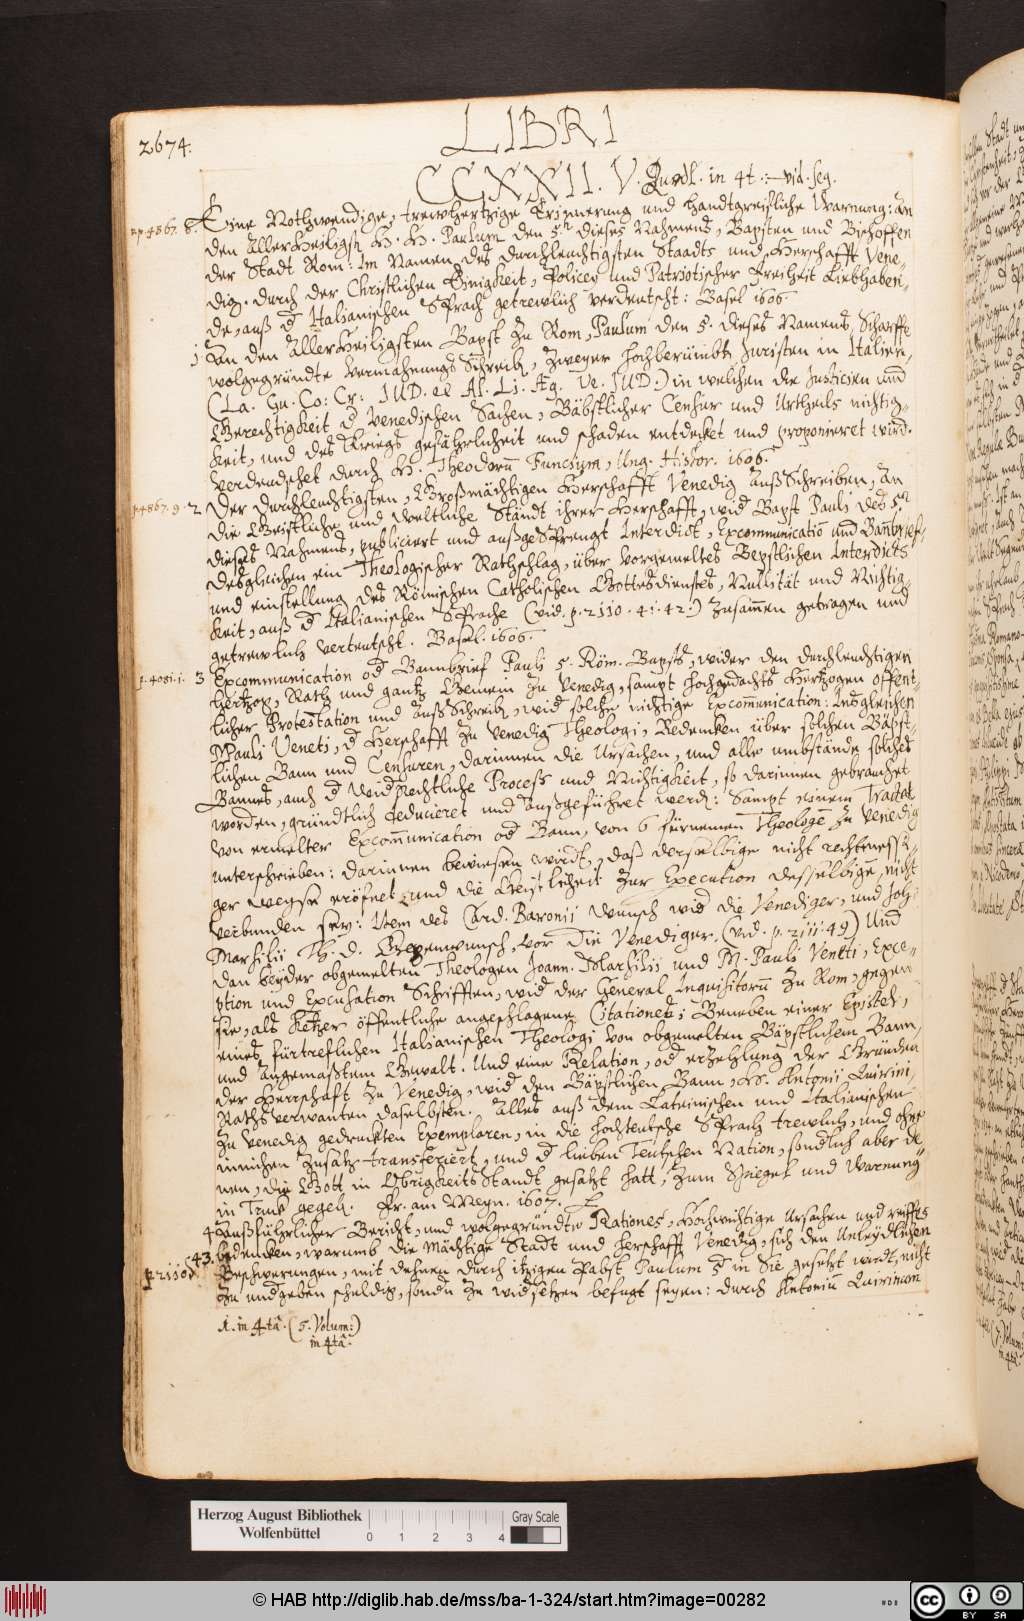 2674.
LIBRI
CCXXII. V. Quodl. in 4t. vid. seq.
p. 4867. 8. Eine Nothwendige, trewhertzige Erinnerung und handtgreifliche Warnung: An
den AllerHeiligst H. H. Paulum den 5t dieses Nahmens, Bapsten und Bischoffen
der Stadt Rom: Im Namen des durchleuchtigsten Staadts und Herschafft Vene-
dig. durch der Christlichen Einigkeit, Policey und Patriotischer Freiheit Liebhaben-
de, auß d Italianischen Sprach getrewlich verdeutscht: Basel 1606
1 An den AllerHeiligsten Bapst zu Rom, Paulum den 5. dieses Namens, Scharffe
wolgegründte Vermahnungs Schreib, zweyer hochberümbt Juristen in Italien,
(La. Gu. Co: Cr: IUD. et Al. Li. Ag. Ve. IUD.) in welchen die Justicien und
Gerechtigkeit d Venedischen Sachen, Bäbstlicher Censur und Urtheils nichtig-
keit, und des Kriegs gefährlichkeit und schaden entdecket und proponieret wird.
verdeudschet durch H. Theodorū Funcsium, Ung. Histor. 1606.
p. 4867. 9. 2 Der Durchleuchtigsten, Großmächtigen Herschafft Venedig Auß Schreiben, An
die Geistliche und Weltliche Ständt ihrer Herschafft, wid Bapst Pauli des 5t
dieses Nahmens, publiciert und außgesprengt Interdict, Excommunicatiō und Banbrief
Desgleichen ein Theologischer Rathschlag, über vorgemeltes Bepstlichen Interdicts
und einstellung des Römischen Catholischen Gottesdienstes, Nullität und Nichtig-
keit, auß d Italianischen Sprache (vid. p. 2110. 41. 42.) zusamen getragen und
getrewlich verteutscht. Basel. 1606.
p. 4081. 1. 3 Excommunication od Bannbrief Pauli 5. Röm. Bapsts, wider den durchleuchtigen
Hertzog, Rath und gantz Gemein zu Venedig, sampt hochgedachts Hertzogen offent-
licher Protestation und Auß Schreib, wid solche nichtige Excommunication: Indgleichen
M Pauli Veneti, d Herschafft zu Venedig Theologi, Bedencken über solchen Bäpst-
lichen Bann und Censuren, darinnen die Ursachen, und alle umbstände solches
Bannes, auch d Widrechtliche Process und Nichtigkeit, so darinnen gebrauchet
worden, gründtlich deducieret und außgeführet werd: Sampt einem Tractat
von ermelter Excommunication od Bann, von 6 fürnemen Theologē zu Venedig
unterschrieben: darinnen bewiesen wirdt, daß derselbige nicht rechtmessi-
ger weyse eröfnet, und die Geistlicheit zur Execution desselbigē, nicht
verbunden sey: Item des Card. Baronii Wunsch wid die Venediger, und Joh:
Marsilii Th. d. Gegenwunsch, vor die Venediger. (vid. p. 2111. 49) Und
dan beyder obgemelten Theologen Joann. Marsilii und M. Pauli Veneti, Exce-
ption und Excusation Schrifften, wid der General Inquisitorū zu Rom, gegen
sie, als Ketzer öffentliche angeschlagene Citationes; Beneben einer Epistel,
eines fürtreflichen Italianischen Theologi von obgemelten Bäpstlichem Bann,
und Angemasstem Gewalt. Und eine Relation, od erzehlung der Gründen
der Herrschafft zu Venedig, wid den Bäpstlichen Bann, H. Antonii Quirini,
Raths verwanten daselbsten. Alles auß dem Lateinischen und Italianischen
zu Venedig gedruckten Exemplaren, in die hochteutsche Sprach trewlich, und ohne
einichen Zusatz transferiert, und d lieben Teutschen Nation, sondlich aber de-
nen, die Gott in Obrigkeits Standt gesetzt hatt, zum Spiegel und Warnung
in Truck gegeb. Fr. am Meyn. 1607.
4 Außführlicher Bericht, und wolgegründte Rationes, Hochwichtige Ursachen und reiffes
p. 2110. 43. bedencken, warumb die Mächtige Stadt und Herschafft Venedig, sich den Unleydlichen
Beschwerungen, mit dehnen durch itzigen Pabst Paulum 5 in Sie gesetzt wirdt, nicht
zu undgeben schuldig, sondn zu widsetzen befugt seyen: durch Antoniū Quirinum
A. in 4tâ. (5. Volum:)
in 4tâ.
Herzog August Bibliothek
Wolfenbüttel
0 1 2 3 4
Gray Scale
© HAB http://diglib.hab.de/mss/ba-1-324/start.htm?image=00282
cc BY SA